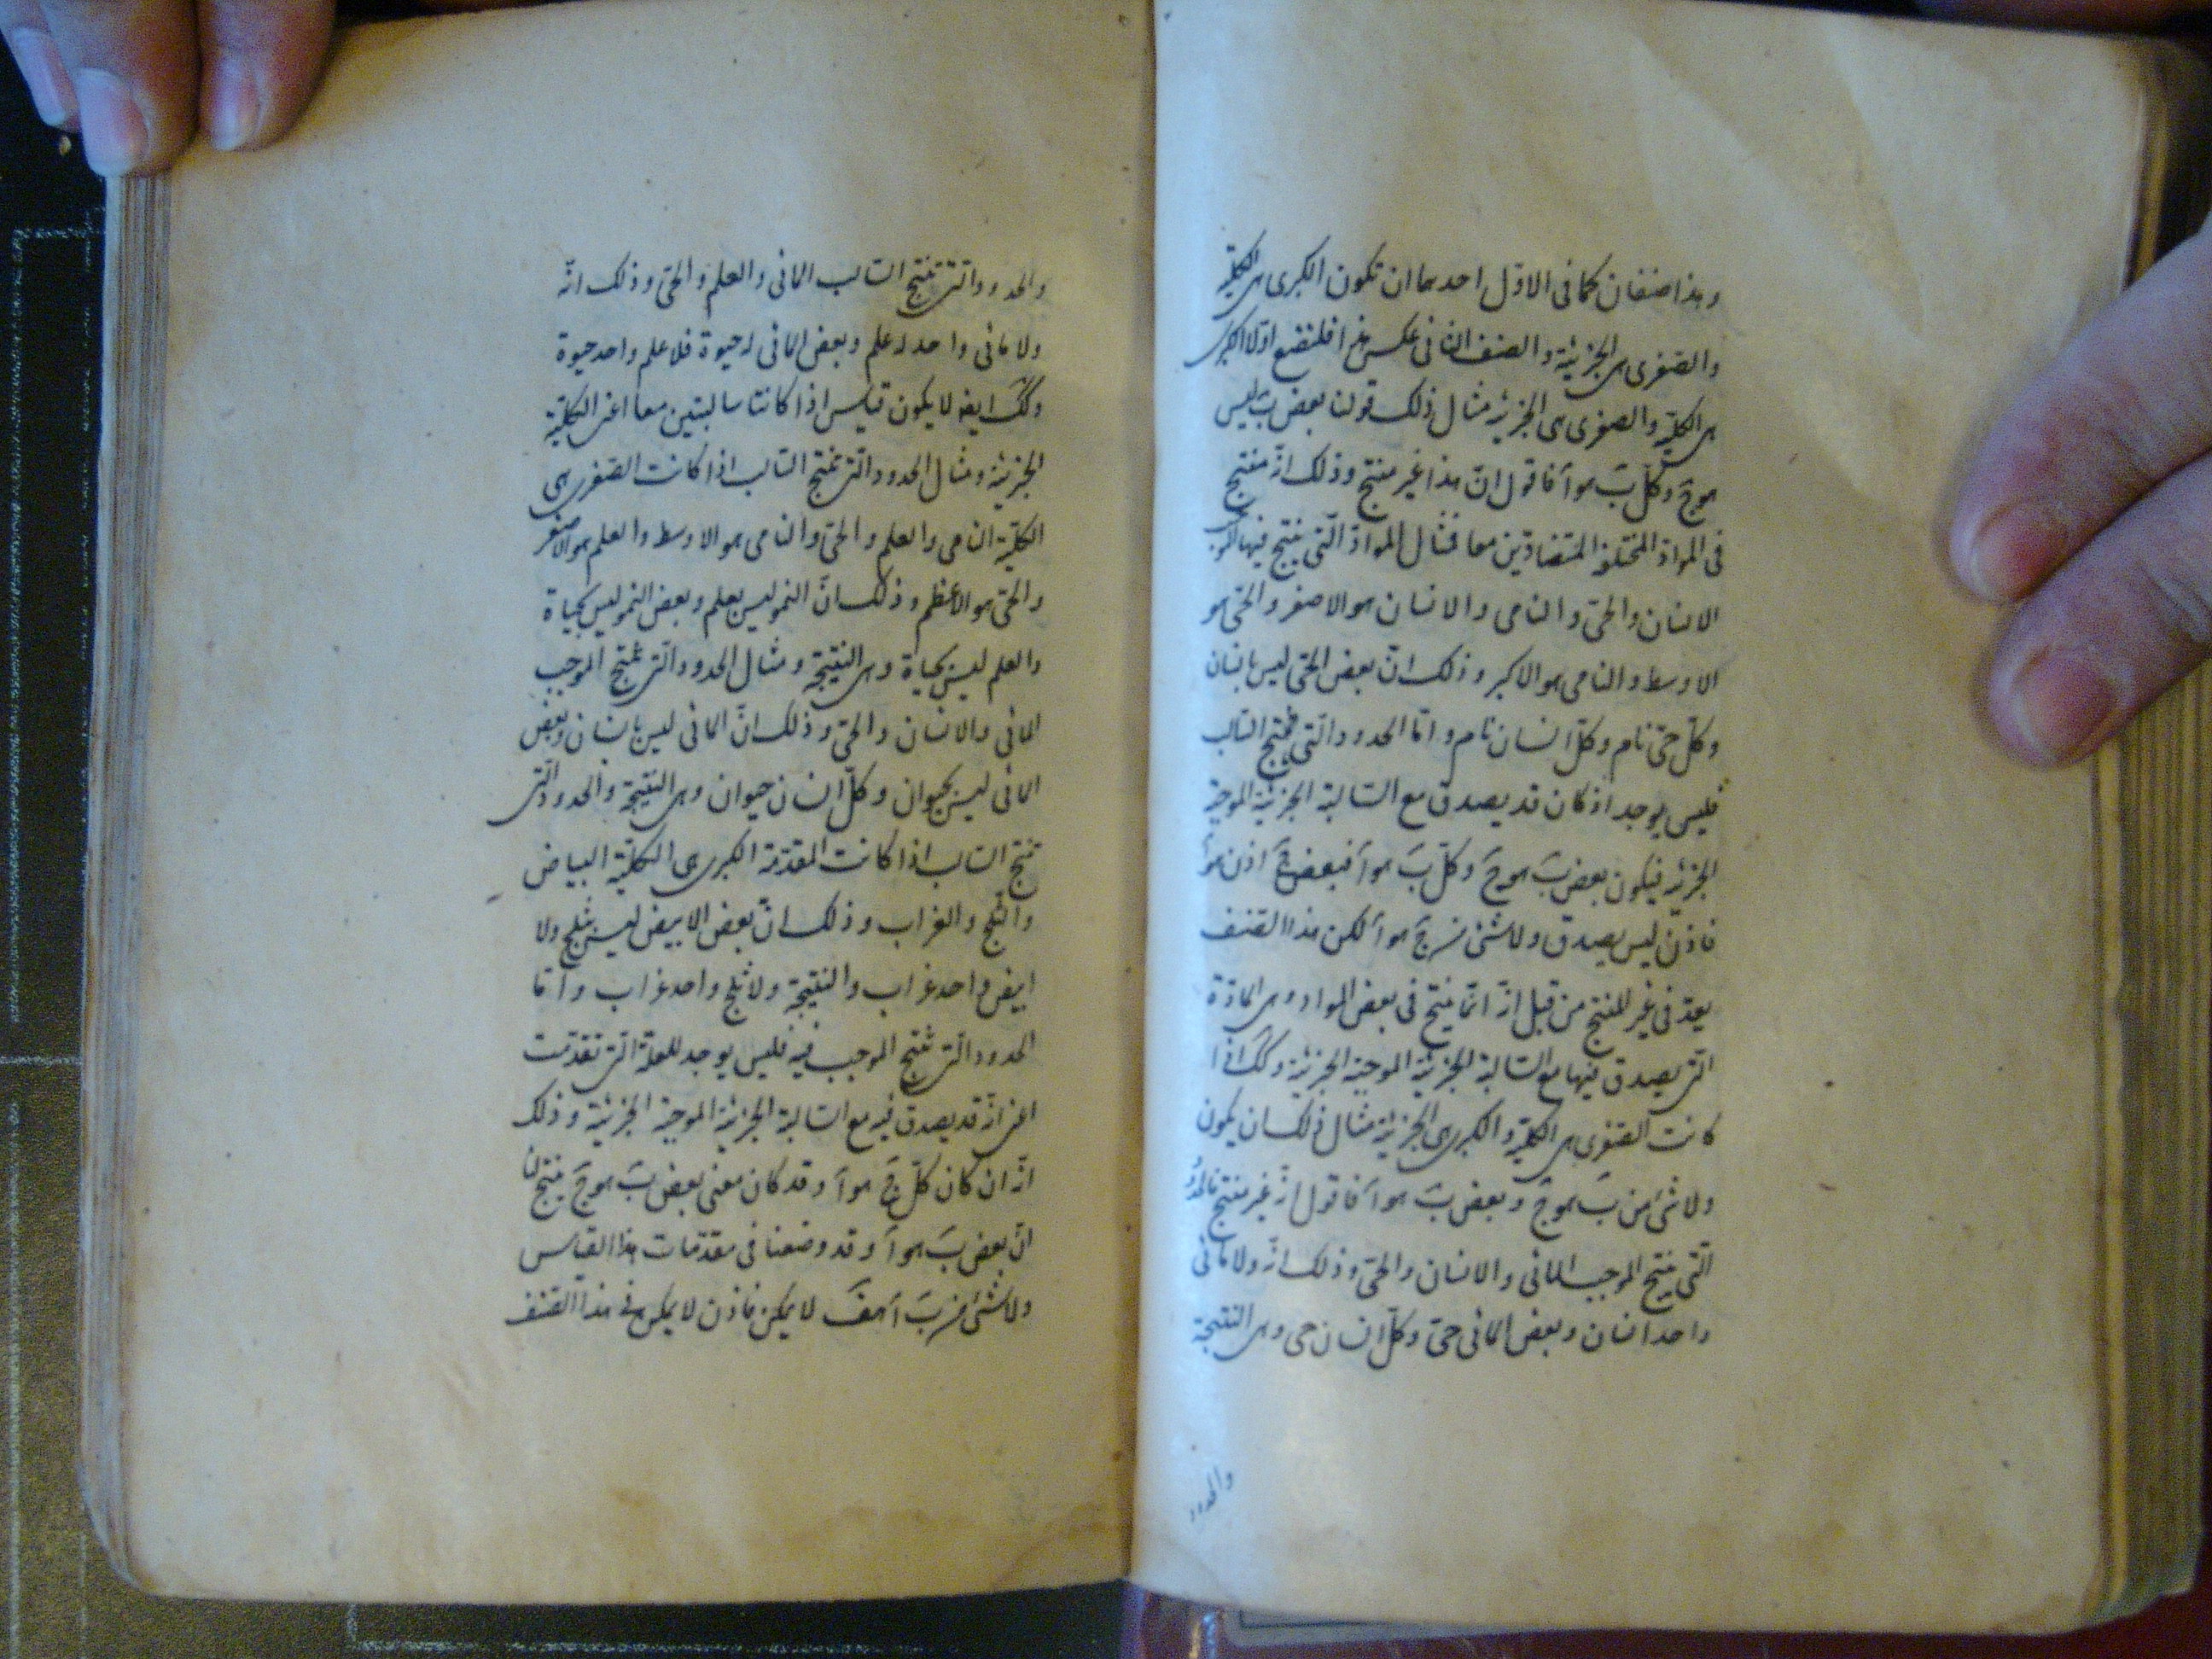 وهذا صنفان كما فى الاوّل احدهما ان تكون الكبرى هى الكلّيّة
والصّغرى هى الجزئيّة والصنف الثانى عكس هذا فلنضع اوّلا الكبرى
هى الكليّة والصغرى هى الجزئيّة مثال ذلك قولنا بعض بَ ليس
هو جَ وكلّ بَ هو آ فاقول انّ هذا غير منتج وذلك انّه منتج
فى الموادّ المختلفة المتضادّين معا فمثال الموادّ الّتى ينتج فيها الموجب
الانسان والحىّ والنامى والانسان هو الاصغر والحىّ هو
الاوسط والنامى هو الاكبر وذلك انّ بعض الحىّ ليس بانسان
وكلّ حىّ نام وكلّ انسان نام وامّا الحدود الّتى تنتج السّالب
فليس يوجد اذ كان قد يصدق مع السّالبة الجزئيّة الموجبة
الجزئيّة فيكون بعض بَ هو جَ وكلّ بَ هو آ فبعض جَ اذن هو آ
فاذن ليس يصدق ولا شئ من جَ هو آ لكن هذا الصّنف
يعدّ فى غير المنتج من قبل انّه انّما ينتج فى بعض الموادّ وهى المادّة
الّتى يصدق فيها مع السّالبة الجزئيّة الموجبة الجزئيّة وكك اذا
كانت الصّغرى هى الكليّة والكبرى هى الجزئيّة مثال ذلك ان يكون
ولا شئ من بَ هو جَ وبعض بَ هو آ فاقول انّه غير منتج فالحدود
الّتى ينتج الموجب المائى والانسان والحىّ وذلك انّه ولا مائى
واحد انسان وبعض المائى حىّ وكلّ انسان حى وهى النتيجة
والحدود
والحدود الّتى تنتج السّالب المائى والعلم والحىّ وذلك انّه
ولا مائى واحد له علم وبعض المائى له حيوة فلا علم واحد حيوة
وكك ايضا لا يكون قياس اذا كانتا سالبتين معا اعنى الكليّة
الجزئيّة ومثال الحدود الّتى تنتج السّالب اذا كانت الصّغرى هى
الكليّة النامى والعلم والحىّ والنامى هو الاوسط والعلم هو الاصغر
والحىّ هو الاعظم وذلك انّ النمو ليس بعلم وبعض النمو ليس بحياة
والعلم ليس بحياة وهى النتيجة ومثال الحدود الّتى تنتج الموجب
المائى والانسان والحىّ وذلك انّ المائى ليس بانسان وبعض
المائى ليس بحيوان وكلّ انسان حيوان وهى النتيجة والحدود الّتى
تنتج السّالب اذا كانت المقدّمة الكبرى هى الكليّة البياض
والثلج والغراب وذلك انّ بعض الابيض ليس بثلج ولا
ابيض واحد غراب والنتيجة ولا ثلج واحد غراب وامّا
الحدود الّتى تنتج الموجب فيه فليس يوجد للعلّة الّتى تقدّمت
اعنى انّه قد يصدق فيه مع السّالبة الجزئيّة الموجبة الجزئيّة وذلك
انّه ان كان كلّ جَ هو آ وقد كان معنى بعض بَ هو جَ ينتج لنا
انّ بعض بَ هو آ وقد وضعنا فى مقدّمات هذا القياس
ولا شئ من بَ آ هف لا يمكن فاذن لا يمكن فى هذا الصّنف